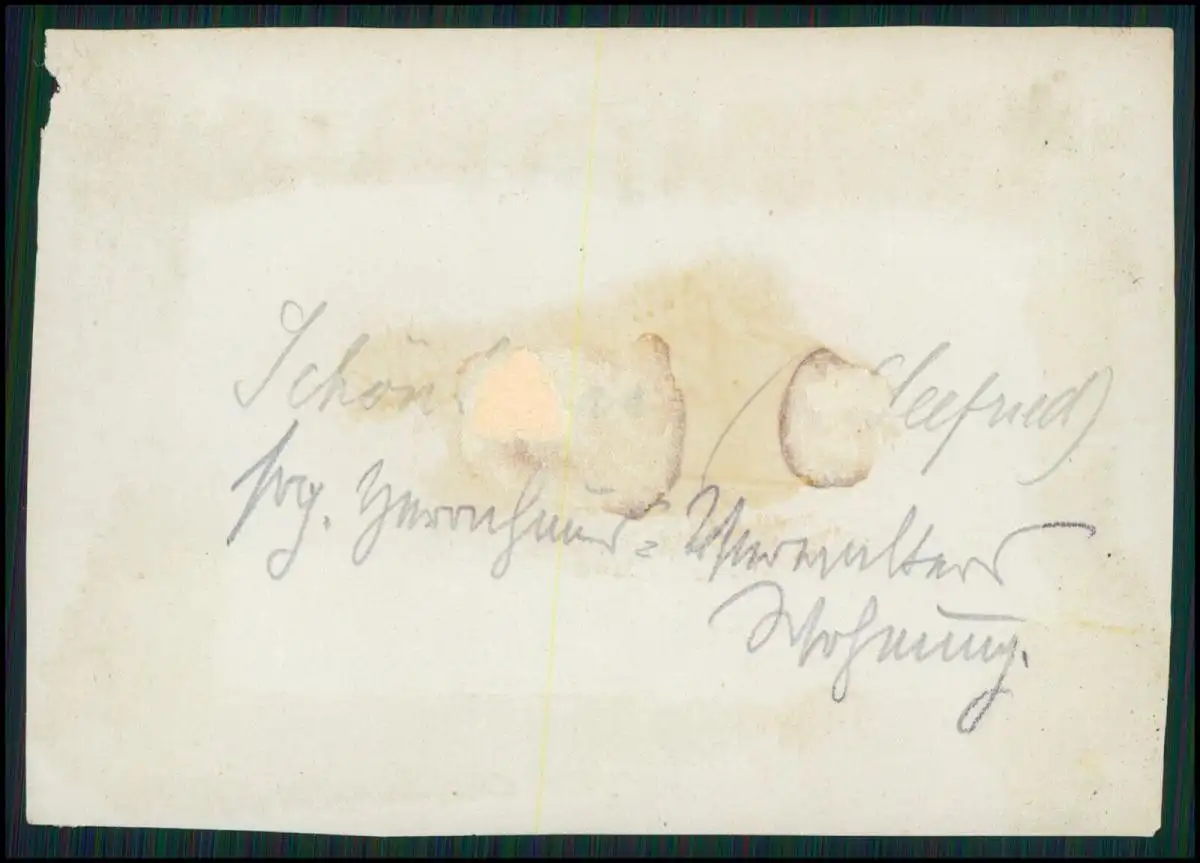 Schön (Seefried)
sog. Herrnhaus= Verwalters
Wohnung.